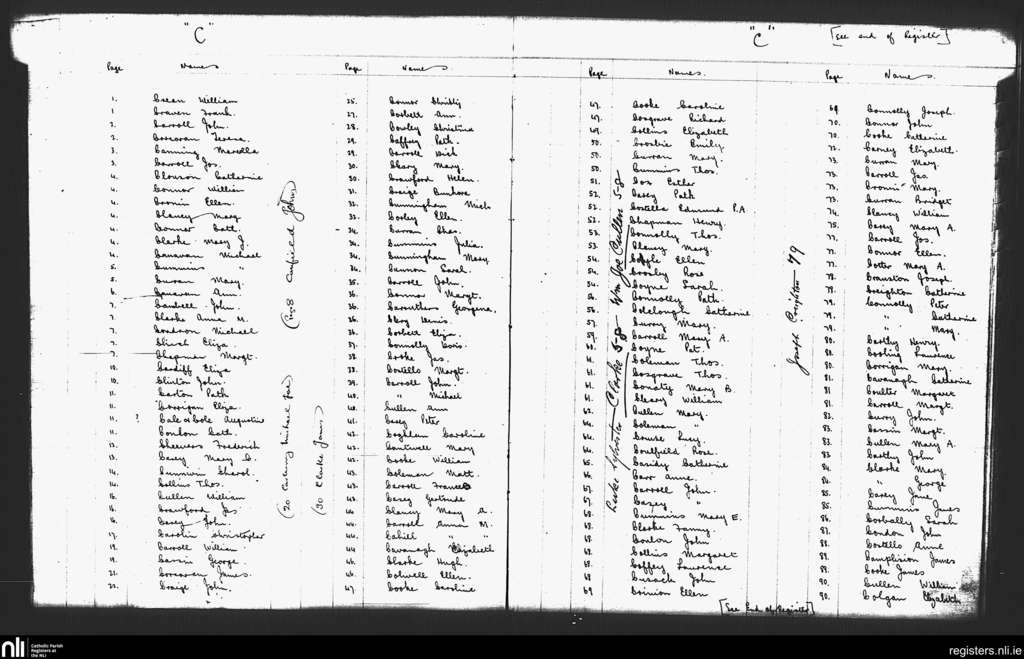 "C"
Page Names
1. Crean William
1. Craven Frank.
2. Carroll John.
2. Corcoran Teresa.
3. Canning Marcella
3. Carroll Jos.
4. Clouson Catherine
4. Connor William
4. Cronin Ellen.
4. Clancy Mary
4. Connor Cath.
4. Clarke Mary J.
4. Canavan Michael
5. Cummins "
5. Curran Mary.
6. Canavan Ann.
7. Campbell John.
7. Clarke Anna M.
7. Condron Michael
7. Church Eliza.
7. Chapman Margt.
10. Cardiff Eliza
10. Clinton John.
11. Carton Path
11. Corrigan Eliza.
11. ? Cale or Cole Augustine
11. Conlon Cath.
12. Cheevers Frederick
13. Casey Mary C.
14. Cunnion Sharol.
14. Collins Thos.
16. Cullen William
16. Crawford Jas
16. Casey John.
17. Carolin Christopher
19. Carroll William
19. Cassin George.
21. Corcoran James.
22. Craige John.
(20 Carberry Michael
(30 Clarke James)
Page Names.
25. Connor Christy
27. Corbett Ann.
28. Cowley Christina
29. Caffrey Path.
29. Carroll Rich
30. Cleary Mary.
30. Crawford Helen.
31. Craige
32. Cunningham Mich
33. Cooley Ellen.
34. Curran Chas.
34. Cummins Julia.
34. Cunningham Mary
34. Cannon Sarah.
35. Carroll John.
36. Connor Margt.
36. Carruthers Georgina.
36. Clery Denis.
36. Corbett Eliza.
37. Connolly Doris.
38. Cooke Jas.
38. Costello Margt.
39. Carroll John.
40. " Michael
40. Cullen Ann
41. Casey Peter
42. Coghlan Caroline
42. Cantwell Mary
42. Cooke William
43. Coleman Matt.
43. Carroll Frances
43. Casey Gertrude
44. Clancy Mary A.
44. Carroll Anna M.
44. Cahill " "
44. Cavanagh Elizabeth
46. Clarke Hugh.
46. Colwell Ellen.
47. Cooke Caroline
"C"
[See end of Register]
Page Names.
47. Cooke Caroline
47. Cosgrave Richard
49. Collins Elizabeth
50. Crosbie Emily.
50. Curran Mary.
50. Cummins Thos.
51. Cox Esther
52. Casey Path
52. Costella Edmund P.A.
52. Chapman Henry.
52. Connolly Thos.
53. Clancy Mary.
54. Coyle Ellen
54. Crosby Rose
54. Coyne Sarah.
56. Connolly Path.
56. Colclough Catherine
57. Curry Mary.
57. Carroll Mary A.
Coyne Pat.
61. Coleman Thos.
61. Cosgrave Thos.
61. Conaty Mary B.
61. Cleary William
62. Cullen Mary.
64. Coleman "
64. Crowse Lucy.
64. Caulfield Rose.
65. Cassidy Catherine
66. Carr Anne.
67. Carroll John.
67. Casey "
68. Cummins Mary E.
68. Clarke Fanny.
68. Conlon John
68. Collins Margaret
68. Caffrey Lawrence
68 Cusack John
69 Crinion Ellen
[See End of Register]
Wm Joe Cullen 58
Clarke 58
Joseph Creighton 79
Page Names
69. Connolly Joseph.
70. Connor John
70. Cooke Catherine
72. Carney Elizabeth.
72. Curran Mary.
73. Carroll Jas
73. Cronin Mary.
73. Curran Bridget
74. Clancy William
75. Casey Mary A.
77. Carroll Jos.
77. Connor Ellen.
77. Cotter Mary A.
78. Cranston Joseph.
78. Creighton Catherine
79. Connolly Peter
79. " Catherine
79. " Mary.
80. Carthy Henry.
80. Cooling Lawrence
80. Corrigan Mary.
81. Cavanagh Catherine
81. Coulter Margaret
81. Carroll Margt.
82. Curry John.
83. Cassin Margt.
83. Cullen Mary A.
83. Carthy John
84. Clarke Mary.
84. " George
85. Casey Jane.
85. Cummins James
86. Corbally Sarah
87. Condon John
88. Costello Anne
89. Camplisson James
89. Cooke James
90. Cullen William
90. Colgan Elizabeth
nli Catholic Parish
Registers at
the NLI
registers.nli.ie